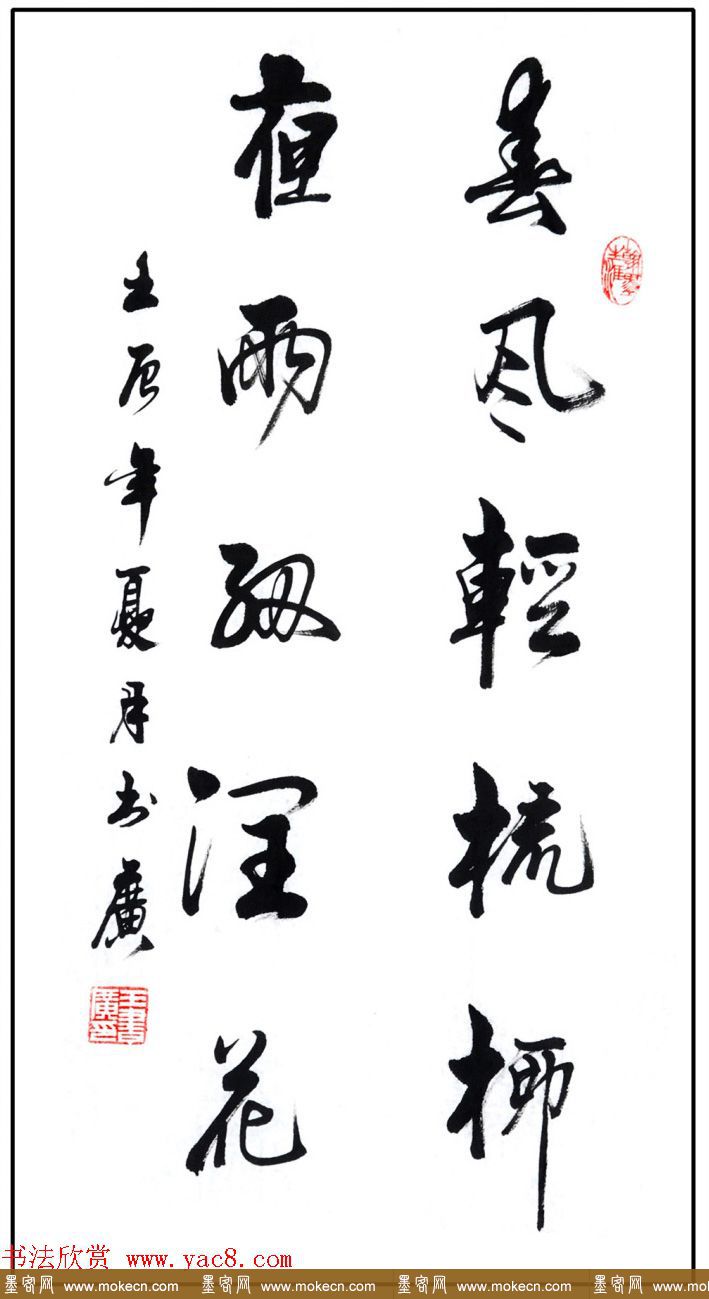 春风輕梳柳
夜雨細润花
壬辰年夏月书廣
王書廣印
书法欣赏 www.yac8.com
墨客网 www.mokecn.com 墨客网 www.mokecn.com 墨客网 www.mokecn.com 墨客网 www.mokecn.com